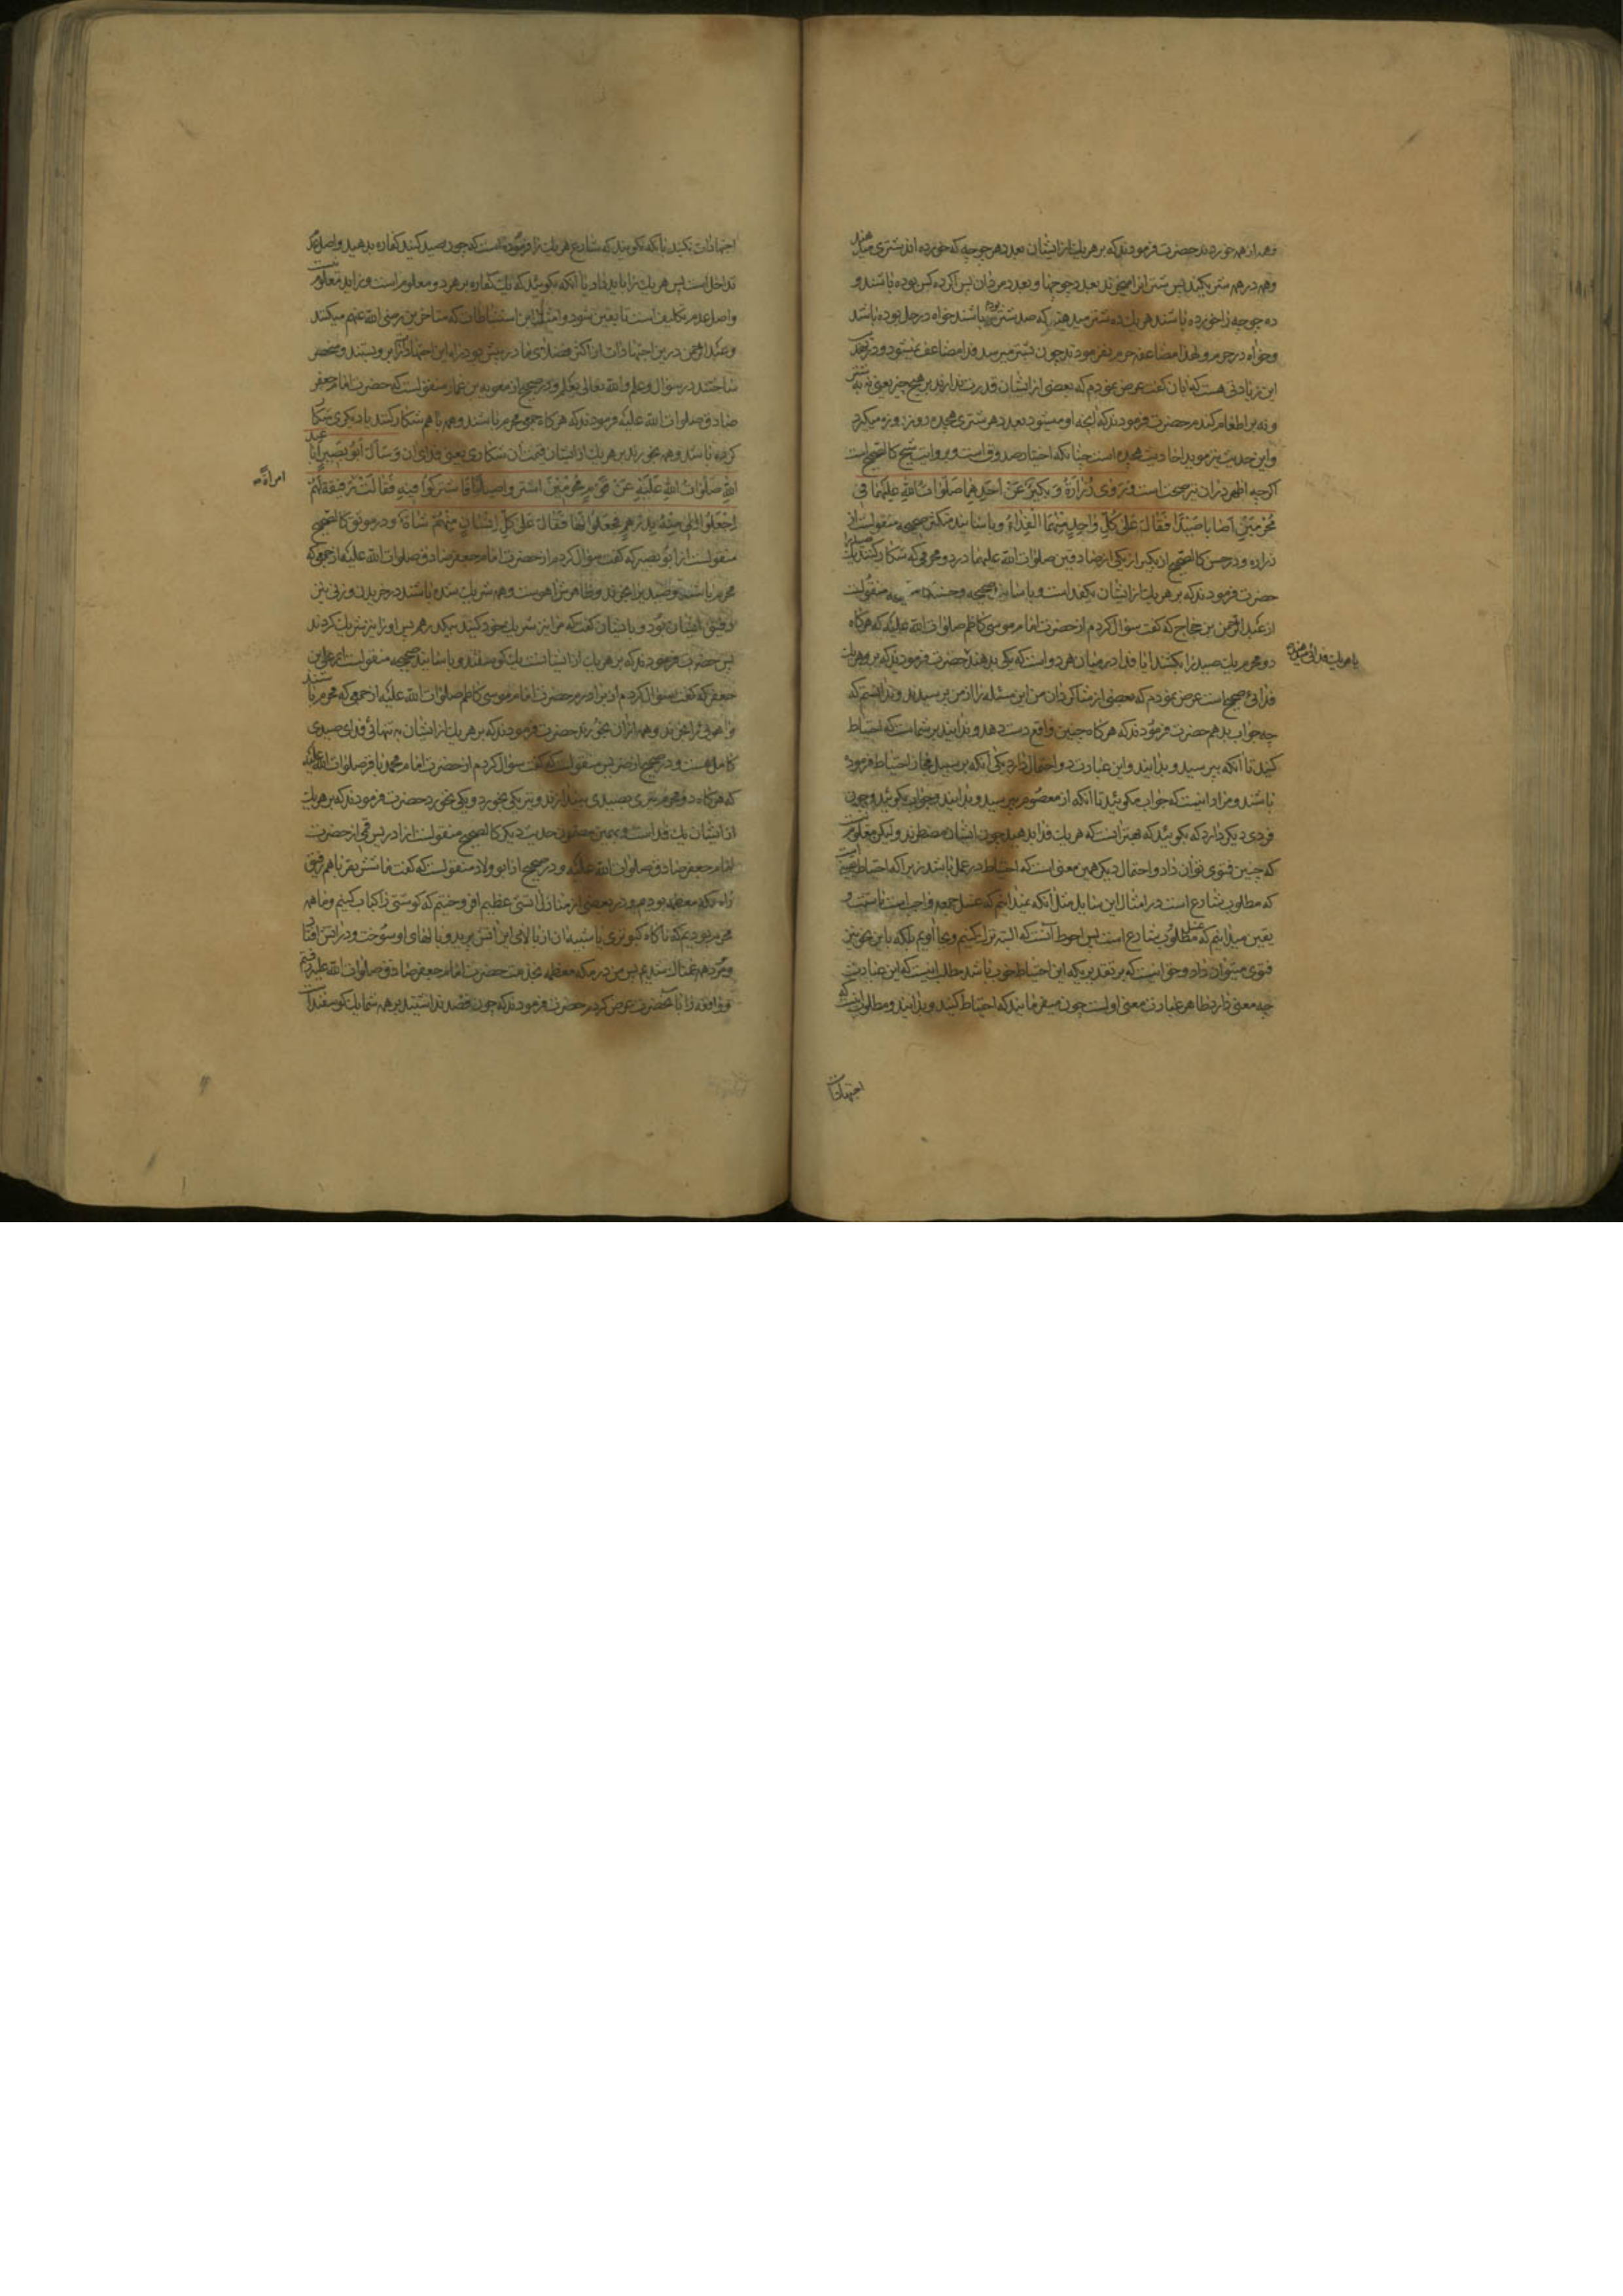 وهمه از همه خوردند حضرت فرمودند که بر هر یک از ایشان بعدد هر جوجه که خورده اند شتری میدهند
وهمه در همه شریکند پس شتر از ایشان بعدد جوجها و بعدد مردان پس اگر ده کس بوده باشند و
ده جوجه را خورده باشند هر یک ده شتر میدهند که صد شتر بوده باشند خواه در حل بوده باشد
وخواه در حرم و لهذا مضاعفه حرم نفرمودند چون بشتر میرسد فدا مضاعف نمیشود و در
این زیادتی هست که ابان گفت عرض نمودم که بعضی از ایشان قدرت ندارند بر هیچ چیز یعنی نه بر شتر
ونه بر اطعام کنم حضرت فرمودند که آنچه او میشود بعدد هر شتری هجده روز روزه میگیرد
واین حدیث نیز موید احادیث هجده است چنانکه اختیار صدوق است و بروایت شیخ کالصحیح است
اگر چه اظهر در ان نیز صحت است وَرَوى زُرَارَةُ وَبُكَيْرٌ عَنْ اَحَدِهِمَا صَلَوَاتُ اللهِ عَلَيْهِمَا فِى
مُحْرِمَيْنِ اَصَابَا صَيْدًا فَقَالَ عَلى كُلِّ وَاحِدٍ مِنْهُمَا الْفِدَاءُ وباسانید متکثره صحیحه منقولست از
زراره و در حسن کالصحیح از بکیر از یکی از صادقین صلوات الله علیهما در دو محرمی که شکار کنند یک صید را
حضرت فرمودند که بر هر یک از ایشان یکفداست و باسانید صحیحه و حسنه کالصحیحه منقولست
از عبد الرحمن بن حجاج که گفت سؤال کردم از حضرت امام موسی کاظم صلوات الله علیه که هرگاه
دو محرم یک صید را بکشند ایا فدا در میان هر دو است که یکی بدهند حضرت فرمودند که بر هر یک
یا هر یک فدائی میدهند
فدائی صحیح است عرض نمودم که بعضی از شاگردان من این مسئله را از من پرسیدند و ندانستم که
چه جواب بدهم حضرت فرمودند که هرگاه چنین واقع دست دهد و ندانید بر شماست که احتیاط
کنید تا آنکه بپرسید و بدانید و این عبارت دو احتمال دارد یکی آنکه بر سبیل مجاز احتیاط فرموده
باشند و مراد اینست که جواب مگوئید تا آنکه از معصوم بپرسید و بدانید و جواب بگوئید و چون
فردی دیگر دارد که بگویند که بهتر اینست که هر یک فدا بدهید چون ایشان مضطرند ولیکن معلوم است
که چنین فتوی توان داد و احتمال دیگر همین معنی است که احتیاط در عمل باشد زیرا که احتیاط اینست
که مطلوب شارع است در امثال این مسایل مثل آنکه نمیدانیم که غسل جمعه واجب است یا سنت و
یقین میدانیم که مطلوب شارع است پس احوط آنست که البته ترک نکنیم و بجا آوریم بلکه باین نحو نیز
فتوی میتوان داد و حق اینست که بر تقدیریکه این احتیاط خوب باشد مطلب اینست که این عبارت
چه معنی دارد ظاهر عبارت معنی اولست چون میفرمایند که احتیاط کنید و بدانید و مطلوب اینست که
اجتهادات
اجتهادات نکنید تا آنکه نگویند که شارع هر یک را فرموده است که چون صید کنید کفاره بدهید و اصل عدم
تداخل است پس هر یک را باید داد یا آنکه بگویند که یک کفاره بر هر دو معلوم است و زاید معلوم نیست
واصل عدم تکلیف است تا یقین شود و امثال این استنباطات که متاخرین رضی الله عنهم میکنند
وعبد الرحمن درین اجتهادات از اکثر فضلای ما در پیش بود راه این اجتهادات را برو بستند و منحصر
ساختند در سؤال و علم والله تعالی یعلم و در صحیح از معویه بن عمار منقولست که حضرت امام جعفر
صادق صلوات الله علیه فرمودند که هرگاه جمعی محرم باشند و همه باهم شکار کنند یا دیگری شکار
کرده باشد و همه بخورند بر هر یک از ایشان قیمت ان شکاری یعنی فدای ان وَسَأَلَ اَبُو بَصِيرٍ اَبَا عَبْدِ
اللهِ صَلَوَاتُ اللهِ عَلَيْهِ عَنْ قَوْمٍ مُحْرِمِينَ اشْتَرَوا صَيْدًا فَاشْتَرَكُوا فِيهِ فَقَالَتْ رَفِيقَةٌ لَهُمْ
امرأة
اِجْعَلُوا لِى مِنْهُ بِدِرْهَمٍ فَجَعَلُوا لَهَا فَقَالَ عَلى كُلِّ اِنْسَانٍ مِنْهُمْ شَاةٌ و در موثق کالصحیح
منقولست از ابو بصیر که گفت سؤال کردم از حضرت امام جعفر صادق صلوات الله علیه از جمعی که
محرم باشند و صید بخرند و ظاهرش اهوست و همه شریک شده باشند در خریدن و زنی نیز
رفیق ایشان بود و بایشان گفت که مرا نیز شریک خود کنید بیکدرهم پس او را نیز شریک کردند
پس حضرت فرمودند که بر هر یک از ایشانست یک گوسفند و باسانید صحیحه منقولست از علی بن
جعفر که گفت سؤال کردم از برادرم حضرت امام موسی کاظم صلوات الله علیه از جمعی که محرم باشند
و اهوئی را بخرند و همه از ان بخورند حضرت فرمودند که بر هر یک از ایشان به تنهائی فدای صیدی
کامل هست و در صحیح از ضریس منقولست که گفت سؤال کردم از حضرت امام محمد باقر صلوات الله علیه
که هرگاه دو محرم تیری بصیدی بیندازند و تیر یکی بخورد و یکی نخورد حضرت فرمودند که بر هر یک
از ایشان یک فداست و بهمین مضمون حدیث دیگر کالصحیح منقولست از ادریس قمی از حضرت
امام جعفر صادق صلوات الله علیه و در صحیح از ابو ولاد منقولست که گفت ما شش نفر باهم رفیق
راه مکه معظمه بودیم و در بعضی از منازل آتشی عظیم افروختیم که گوشتی را کباب کنیم و ما همه
محرم بودیم که ناگاه کبوتری یا شبیه ان از بالای این آتش پرید و بالهای او سوخت و در آتش افتاد
و مرد همه غمناک شدیم پس من در مکه معظمه بخدمت حضرت امام جعفر صادق صلوات الله علیه رفتم
و واقعه را بآنحضرت عرض کردم حضرت فرمودند که چون قصد نداشتید بر همه شما یک گوسفند است